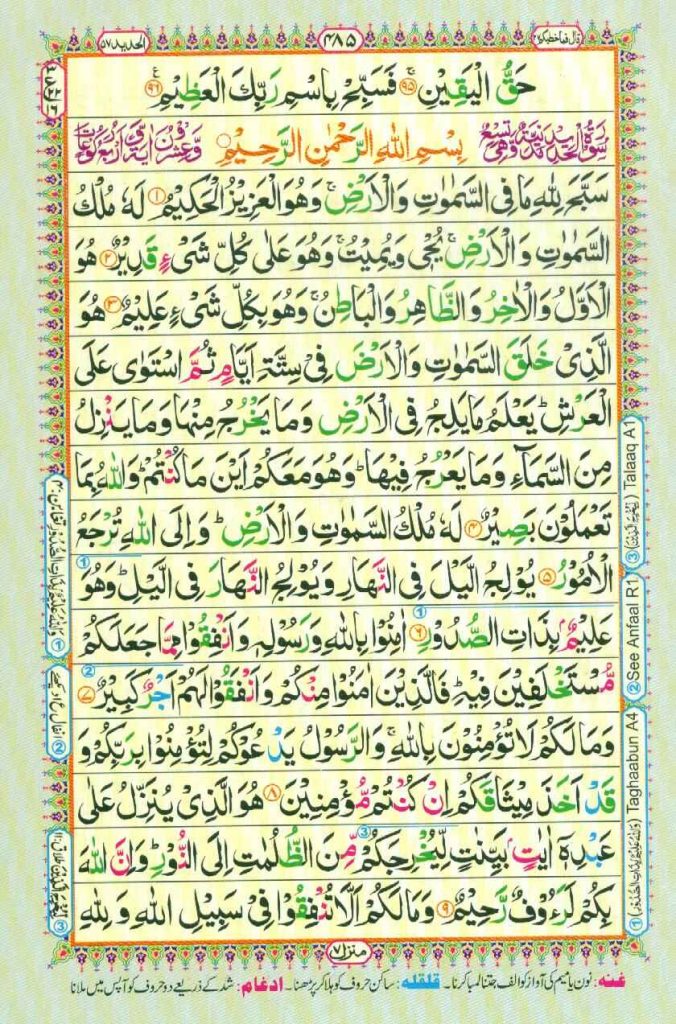 قال فما خطبكم ٢٧
٤٨٥
الحديد ٥٧
حَقُّ الْيَقِيْنِ ۚ۝٩٥ فَسَبِّحْ بِاسْمِ رَبِّكَ الْعَظِيْمِ ۝٩٦
سُوْرَةُ الْحَدِيْدِ مَدَنِيَّةٌ وَّهِيَ تِسْعٌ
بِسْمِ اللهِ الرَّحْمٰنِ الرَّحِيْمِ
وَّعِشْرُوْنَ اٰيَةً وَّاَرْبَعُ رُكُوْعَاتٍ
سَبَّحَ لِلّٰهِ مَا فِى السَّمٰوٰتِ وَالْاَرْضِ ۚ وَهُوَ الْعَزِيْزُ الْحَكِيْمُ ۝١ لَهٗ مُلْكُ
السَّمٰوٰتِ وَالْاَرْضِ ۚ يُحْيٖ وَيُمِيْتُ ۚ وَهُوَ عَلٰى كُلِّ شَىْءٍ قَدِيْرٌ ۝٢ هُوَ
الْاَوَّلُ وَالْاٰخِرُ وَالظَّاهِرُ وَالْبَاطِنُ ۚ وَهُوَ بِكُلِّ شَىْءٍ عَلِيْمٌ ۝٣ هُوَ
الَّذِىْ خَلَقَ السَّمٰوٰتِ وَالْاَرْضَ فِىْ سِتَّةِ اَيَّامٍ ثُمَّ اسْتَوٰى عَلَى
الْعَرْشِ ؕ يَعْلَمُ مَا يَلِجُ فِى الْاَرْضِ وَمَا يَخْرُجُ مِنْهَا وَمَا يَنْزِلُ
مِنَ السَّمَآءِ وَمَا يَعْرُجُ فِيْهَا ؕ وَهُوَ مَعَكُمْ اَيْنَ مَا كُنْتُمْ ؕ وَاللّٰهُ بِمَا
تَعْمَلُوْنَ بَصِيْرٌ ۝٤ لَهٗ مُلْكُ السَّمٰوٰتِ وَالْاَرْضِ ؕ وَاِلَى اللّٰهِ تُرْجَعُ
الْاُمُوْرُ ۝٥ يُوْلِجُ الَّيْلَ فِى النَّهَارِ وَيُوْلِجُ النَّهَارَ فِى الَّيْلِ ؕ وَهُوَ
عَلِيْمٌۢ بِذَاتِ الصُّدُوْرِ ۝٦ اٰمِنُوْا بِاللّٰهِ وَرَسُوْلِهٖ وَاَنْفِقُوْا مِمَّا جَعَلَكُمْ
مُّسْتَخْلَفِيْنَ فِيْهِ ؕ فَالَّذِيْنَ اٰمَنُوْا مِنْكُمْ وَاَنْفَقُوْا لَهُمْ اَجْرٌ كَبِيْرٌ ۝٧
وَمَا لَكُمْ لَا تُؤْمِنُوْنَ بِاللّٰهِ ۚ وَالرَّسُوْلُ يَدْعُوْكُمْ لِتُؤْمِنُوْا بِرَبِّكُمْ وَ
قَدْ اَخَذَ مِيْثَاقَكُمْ اِنْ كُنْتُمْ مُّؤْمِنِيْنَ ۝٨ هُوَ الَّذِىْ يُنَزِّلُ عَلٰى
عَبْدِهٖٓ اٰيٰتٍۭ بَيِّنٰتٍ لِّيُخْرِجَكُمْ مِّنَ الظُّلُمٰتِ اِلَى النُّوْرِ ؕ وَاِنَّ اللّٰهَ
بِكُمْ لَرَءُوْفٌ رَّحِيْمٌ ۝٩ وَمَا لَكُمْ اَلَّا تُنْفِقُوْا فِىْ سَبِيْلِ اللّٰهِ وَ لِلّٰهِ
③ Talaaq A1
② See Anfaal R1
① Taghaabun A4
منزل ٧
غنہ: نون یا میم کی آواز کو الف جتنا لمبا کرنا۔ قلقلہ: ساکن حروف کو ہلا کر پڑھنا۔ ادغام: شد کے ذریعے دو حروف کو آپس میں ملانا